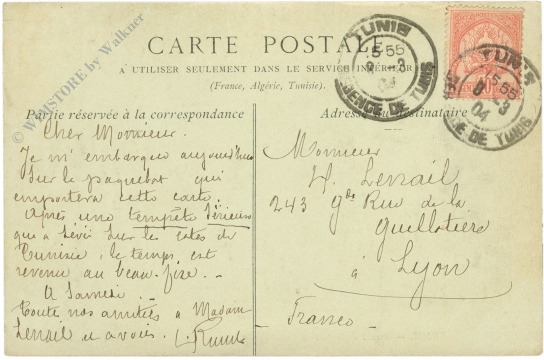 © WorldSTORE by Walkner
CARTE POSTALE
A UTILISER SEULEMENT DANS LE SERVICE INTÉRIEUR
(France, Algérie, Tunisie).
Partie réservée à la correspondance
Cher Monsieur.
Je m'embarque aujourd'hui
sur le paquebot qui
emportera cette carte.
Après une tempête sérieuse
qui a sévi sur les côtes de
Tunisie, le temps est
revenu au beau fixe. -
A Samedi. -
Toute nos amitiés à Madame
Lenail et à vous.
Adresse du destinataire
Monsieur
H. Lenail
243 gde Rue de la
Guillotière
à Lyon
France
TUNIS
15-55
8 -3
04
REGENCE DE TUNIS
TUNIS
15-55
8 -3
04
REGENCE DE TUNIS